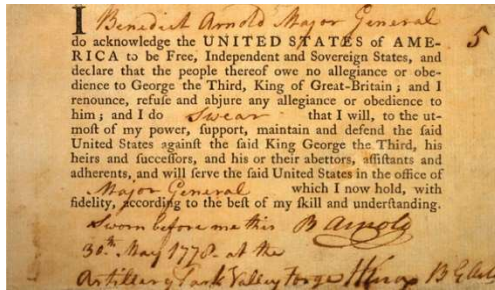 I Benedict Arnold Major General
do acknowledge the UNITED STATES of AME-
RICA to be Free, Independent and Sovereign States, and
declare that the people thereof owe no allegiance or obe-
dience to George the Third, King of Great-Britain; and I
renounce, refuſe and abjure any allegiance or obedience to
him; and I do Swear that I will, to the ut-
moſt of my power, ſupport, maintain and defend the ſaid
United States againſt the ſaid King George the Third, his
heirs and ſucceſſors, and his or their abettors, aſſiſtants and
adherents, and will ſerve the ſaid United States in the office of
Major General which I now hold, with
fidelity, according to the beſt of my ſkill and underſtanding.
Sworn before me this B Arnold
30th May 1778 at the
Artillery Park Valley Forge HKnox B G Art
5